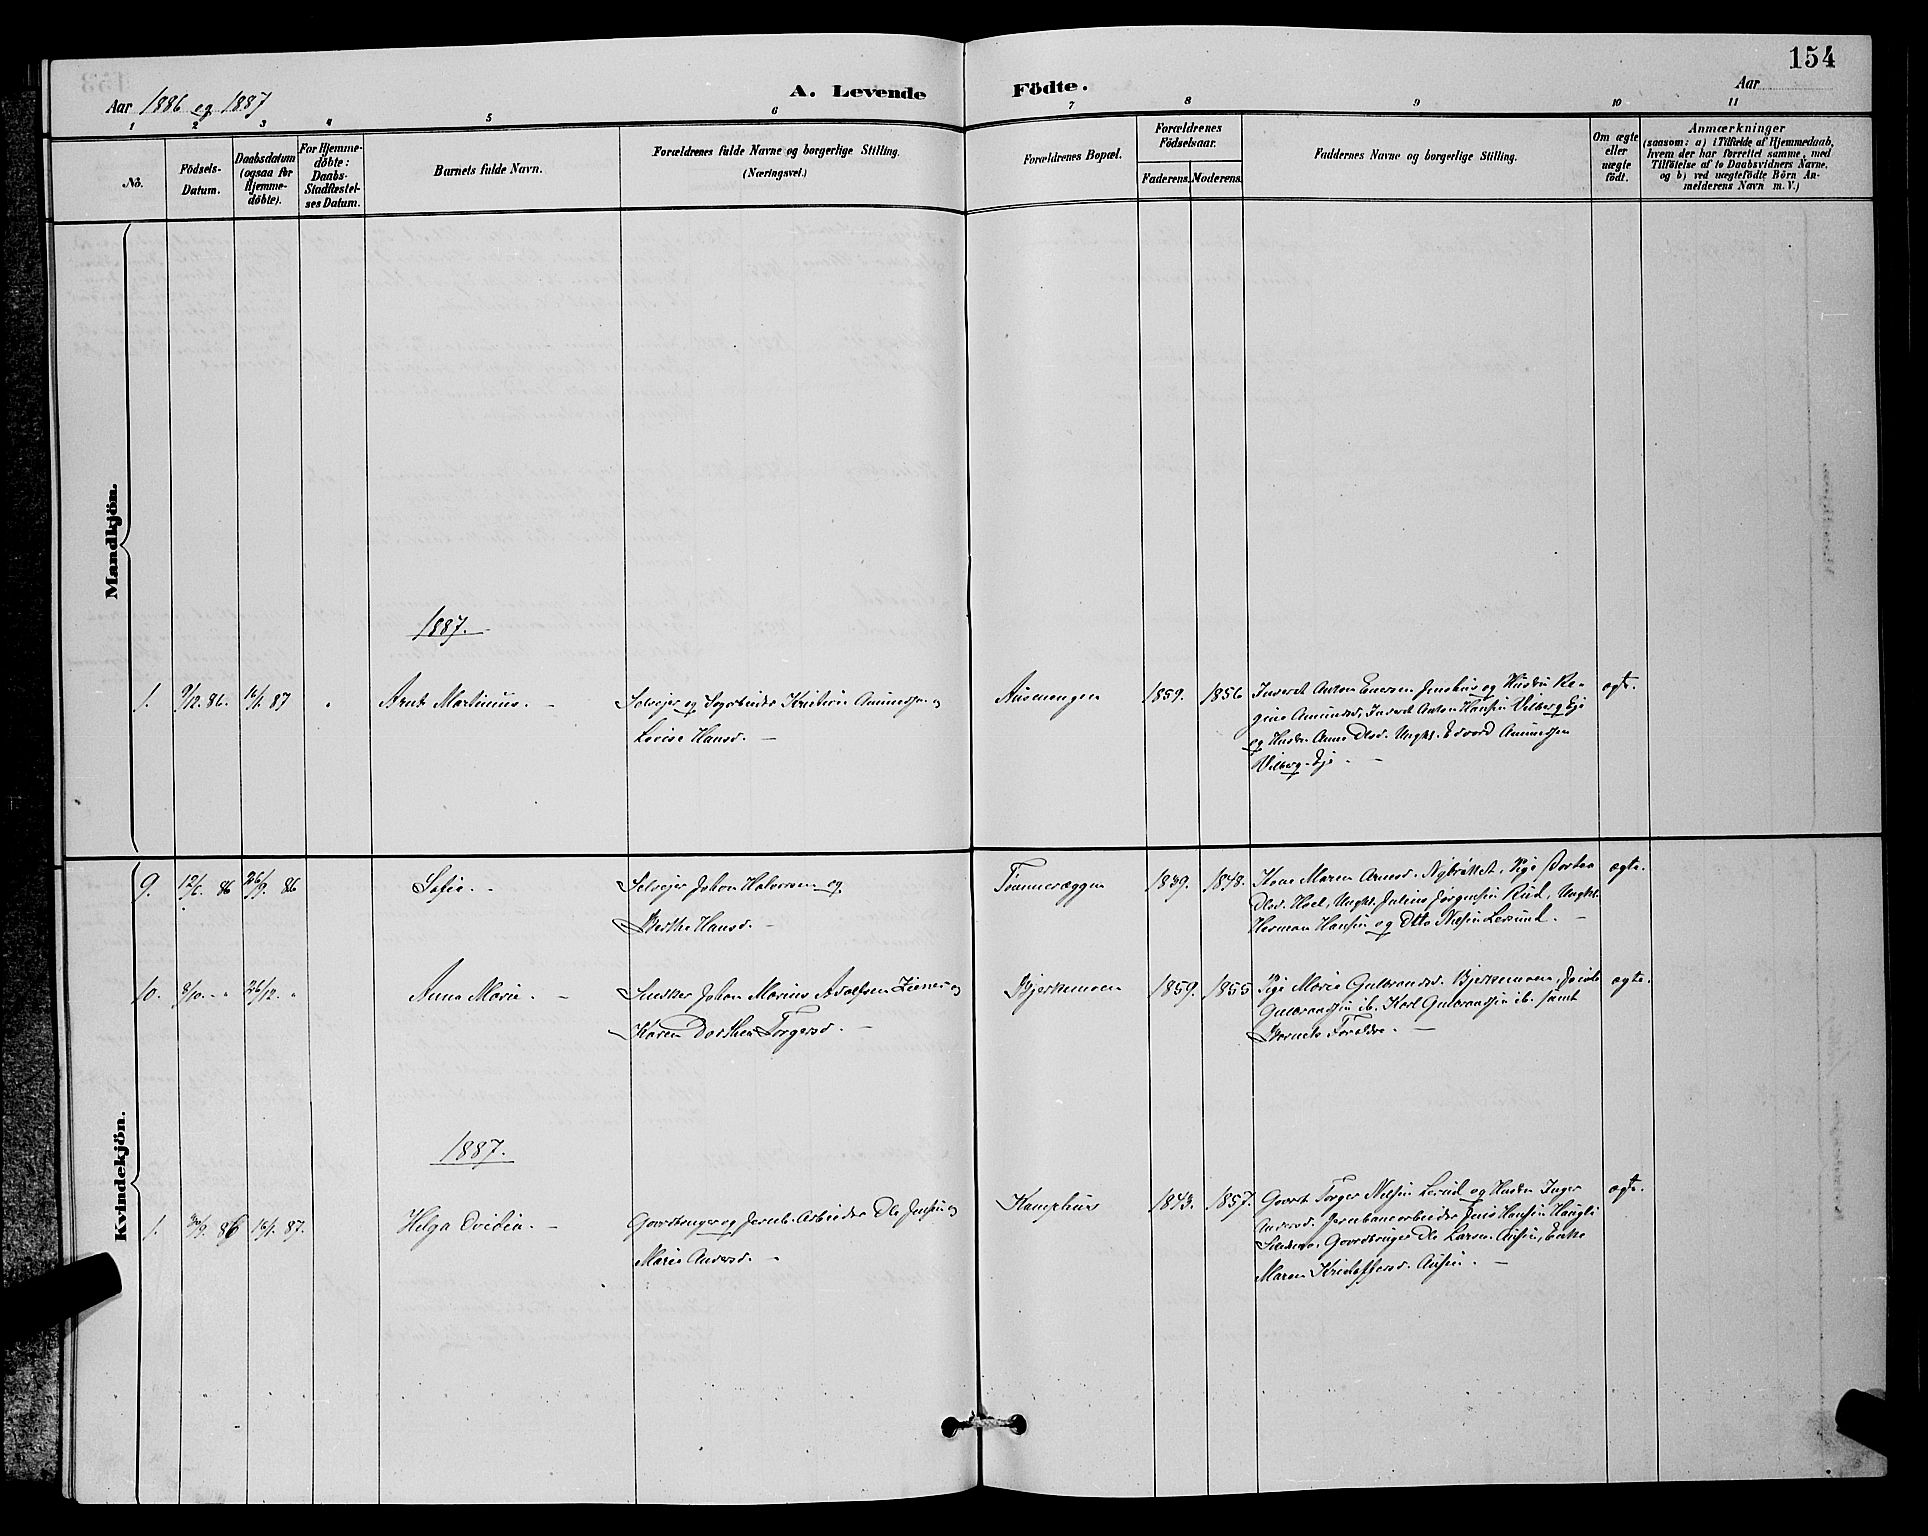 154
Aar 1886 og 1887
A. Levende Födte.
Aar
1 2 3 4 5 6 7 8 9 10 11
No.
Födsels-Datum.
Daabsdatum (ogsaa for Hjemme-döbte).
For Hjemme-döbte: Daabs-Stadfæstel-ses Datum.
Barnets fulde Navn.
Forældrenes fulde Navne og borgerlige Stilling.
(Næringsvei.)
Forældrenes Bopæl.
Forældrenes Födselsaar.
Faderens. Moderens.
Faddernes Navne og borgerlige Stilling.
Om ægte eller uægte födt.
Anmærkninger
(saasom: a) i Tilfælde af Hjemmedaab, hvem der har forrettet samme, med Tilföielse af to Daabsvidners Navne, og b) ved uægtefödte Börn Anmelderens Navn m. V.)
Mandkjön.
1887.
1. 9/12. 86. 16/1 87 " Arnt Martinius. Selvejer og Sagarbeider Kristian Amundsen og
Lovise Hansd.
Ausenengen 1859. 1856 Inderst Anton Enersen Jenshus og Hustru Re-
gine Amundsd, Inderst Anton Hansen Vilberg Eje
og Hustru Anne Olsd. Ungk. Edvard Amundsen
Vilberg-Eje. ægte.
Kvindekjön.
9. 12/6. 86 26/9. 86 Sofie. Selvejer Johan Halvorsen og
Berthe Hansd.
1839. 1848. Kone Maren Arnesd. Nybråttet, Pige Dortea
Olsd. Hoel, Ungk. Julius Jørgensen Rud, Ungk.
Herman Hansen og Otto Nilsen Lersund. ægte.
10. 8/10. " " 26/12. " Anna Marie. Snedker Johan Marius Adolfsen Ziener og
Karen Dorthea Torgersd.
Bjerkemoen 1859. 1855 Pige Marie Gulbrandsd. Bjerkemoen,
Gulbrandsen ib. Karl Gulbrandsen ib. samt
Barnets Forældre. ægte.
1887.
1. 30/9. 86 16/1. 87. Helga Ovidia. Gaardbruger og Jernb. Arbeider Ole Jensen og
Marie Andersd.
Kamphus 1843. 1857. Gaardbr. Torger Nilsen Lerud og Hustru Inger
Andersd. Jernbanearbeider Jens Hansen Haugli
Gaardbruger Ole Larsen Ausen, Enke
Maren Kristoffersd. Ausen. ægte.